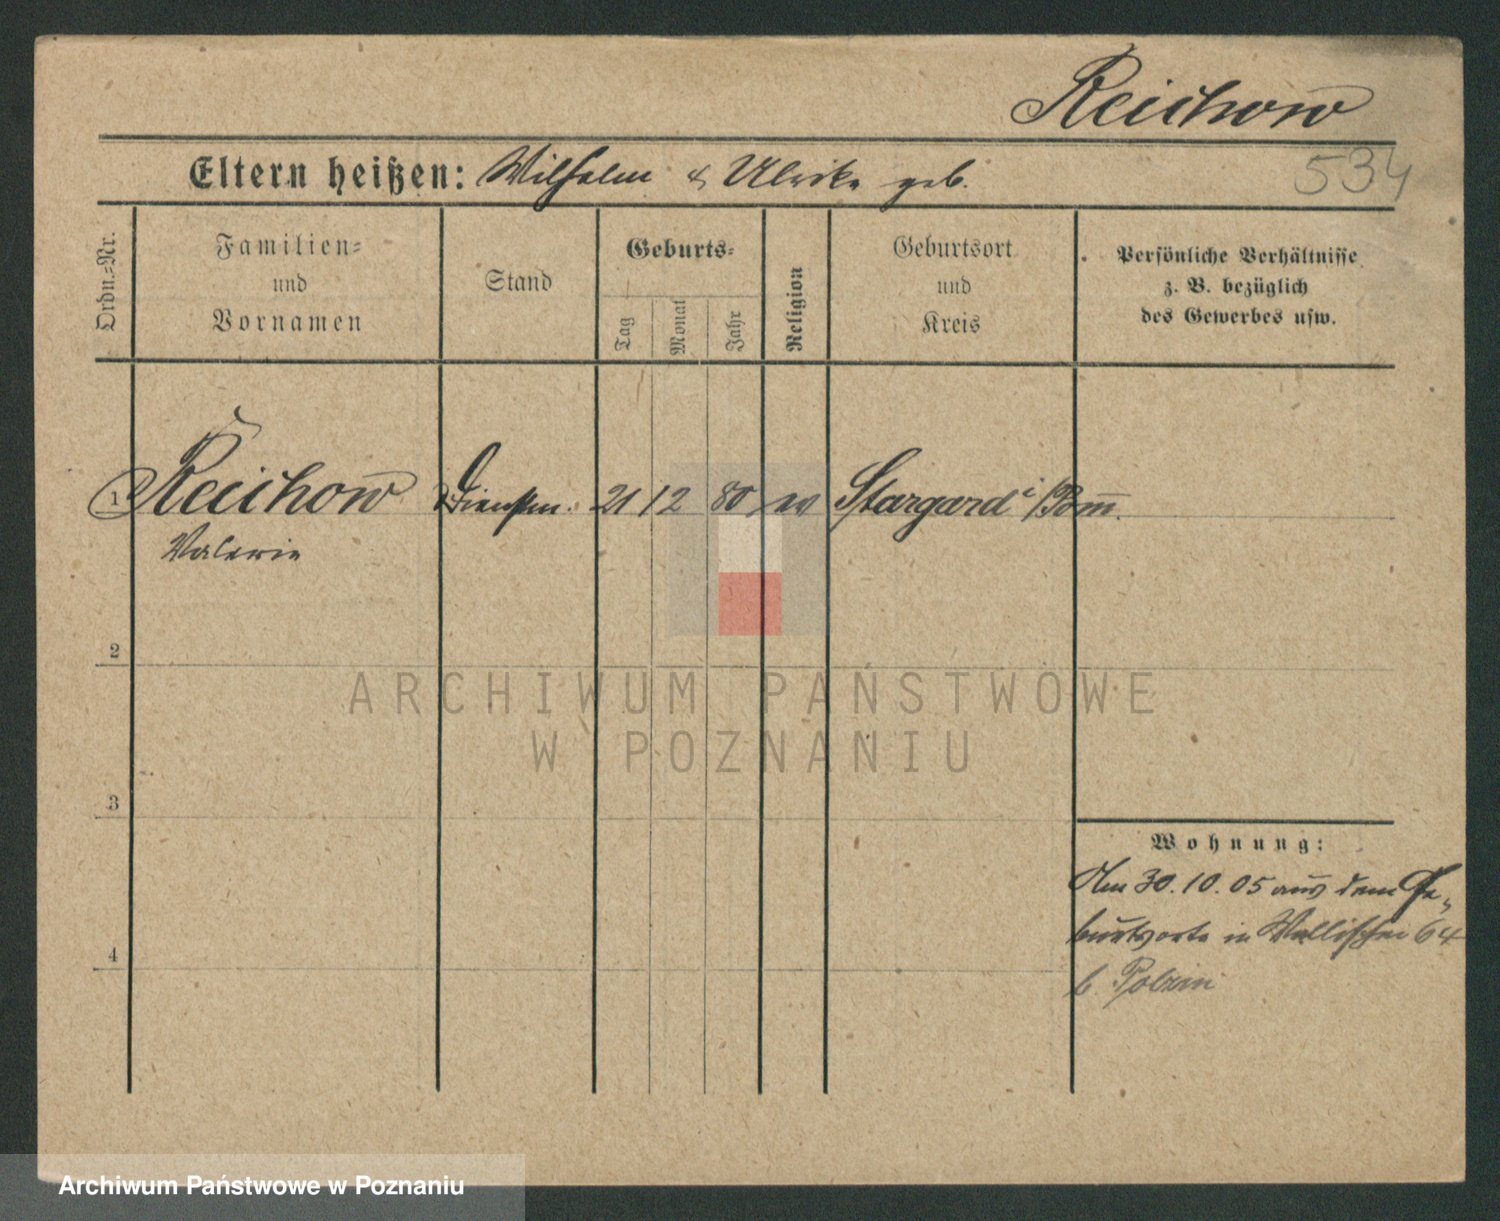 Reichow
534
Eltern heißen: Wilhelm & Ulrike geb.
Ordn.=Nr.
Familien=
und
Vornamen
Stand
Geburts=
Tag
Monat
Jahr
Religion
Geburtsort
und
Kreis
Persönliche Verhältnisse
z. B. bezüglich
des Gewerbes usw.
1 Reichow Dienstm. 21 12 80 ev Stargard i/Pom.
Valerie
2
3
4
Wohnung:
Am 30.10.05 aus dem Ge-
burtsorte in Wallischei 64
b Polzin
ARCHIWUM PAŃSTWOWE
W POZNANIU
Archiwum Państwowe w Poznaniu